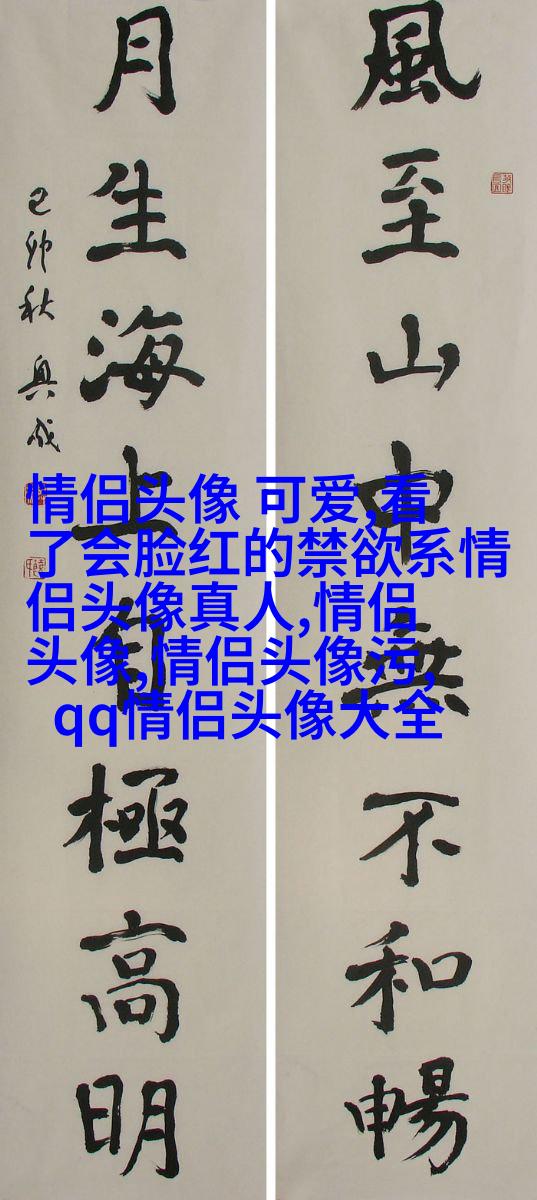 風至山中無不和暢
月生海上自極高明
己卯秋 興成
情侣头像 可爱,看
了会脸红的禁欲系情
侣头像真人,情侣
头像,情侣头像污,
qq情侣头像大全